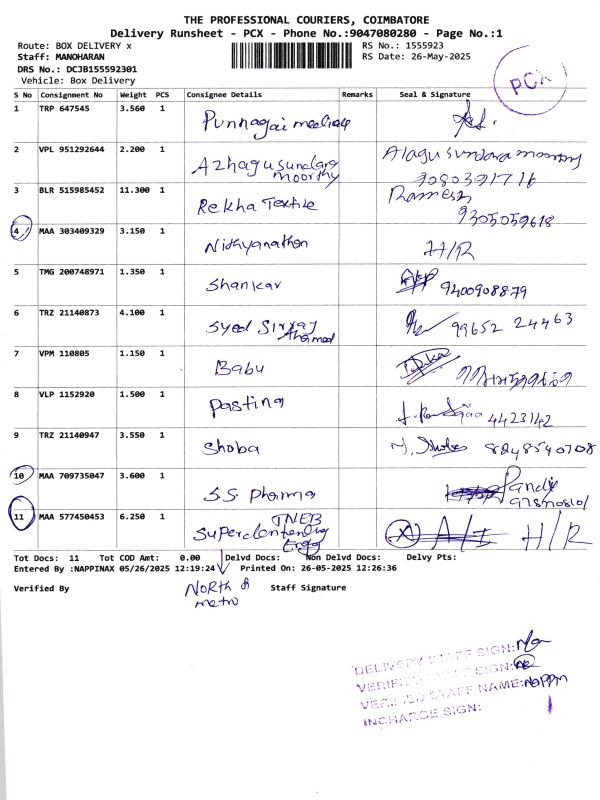 THE PROFESSIONAL COURIERS, COIMBATORE
Delivery Runsheet - PCX - Phone No.:9047080280 - Page No.:1
Route: BOX DELIVERY x RS No.: 1555923
Staff: MANOHARAN RS Date: 26-May-2025
DRS No.: DCJB155592301
Vehicle: Box Delivery
PCX
S No Consignment No Weight PCS Consignee Details Remarks Seal & Signature
1 TRP 647545 3.560 1 Punnagai medicals
2 VPL 951292644 2.200 1 Azhagusundara moorthy Alagu sundara moorthy
3 BLR 515985452 11.300 1 Rekha Textile Ramesh 9305059618
4 MAA 303409329 3.150 1 Nithyanathan H/R
5 TMG 200748971 1.350 1 Shankar 9400908879
6 TRZ 21140873 4.100 1 Syed Sirraj Ahamed 99652 24463
7 VPM 110805 1.150 1 Babu
8 VLP 1152920 1.500 1 Pasting 4423142
9 TRZ 21140947 3.550 1 Shoba 8248540708
10 MAA 709735047 3.600 1 S.S. Pharma Pandi
11 MAA 577450453 6.250 1 TNEB Superdentending Engg A/I H/R
Tot Docs: 11 Tot COD Amt: 0.00 Delvd Docs: Non Delvd Docs: Delvy Pts:
Entered By :NAPPINAX 05/26/2025 12:19:24 Printed On: 26-05-2025 12:26:36
Verified By North & metro Staff Signature
DELIVERY STAFF SIGN:
VERIFIED STAFF SIGN:
VERIFIED STAFF NAME: Nappin
INCHARGE SIGN: